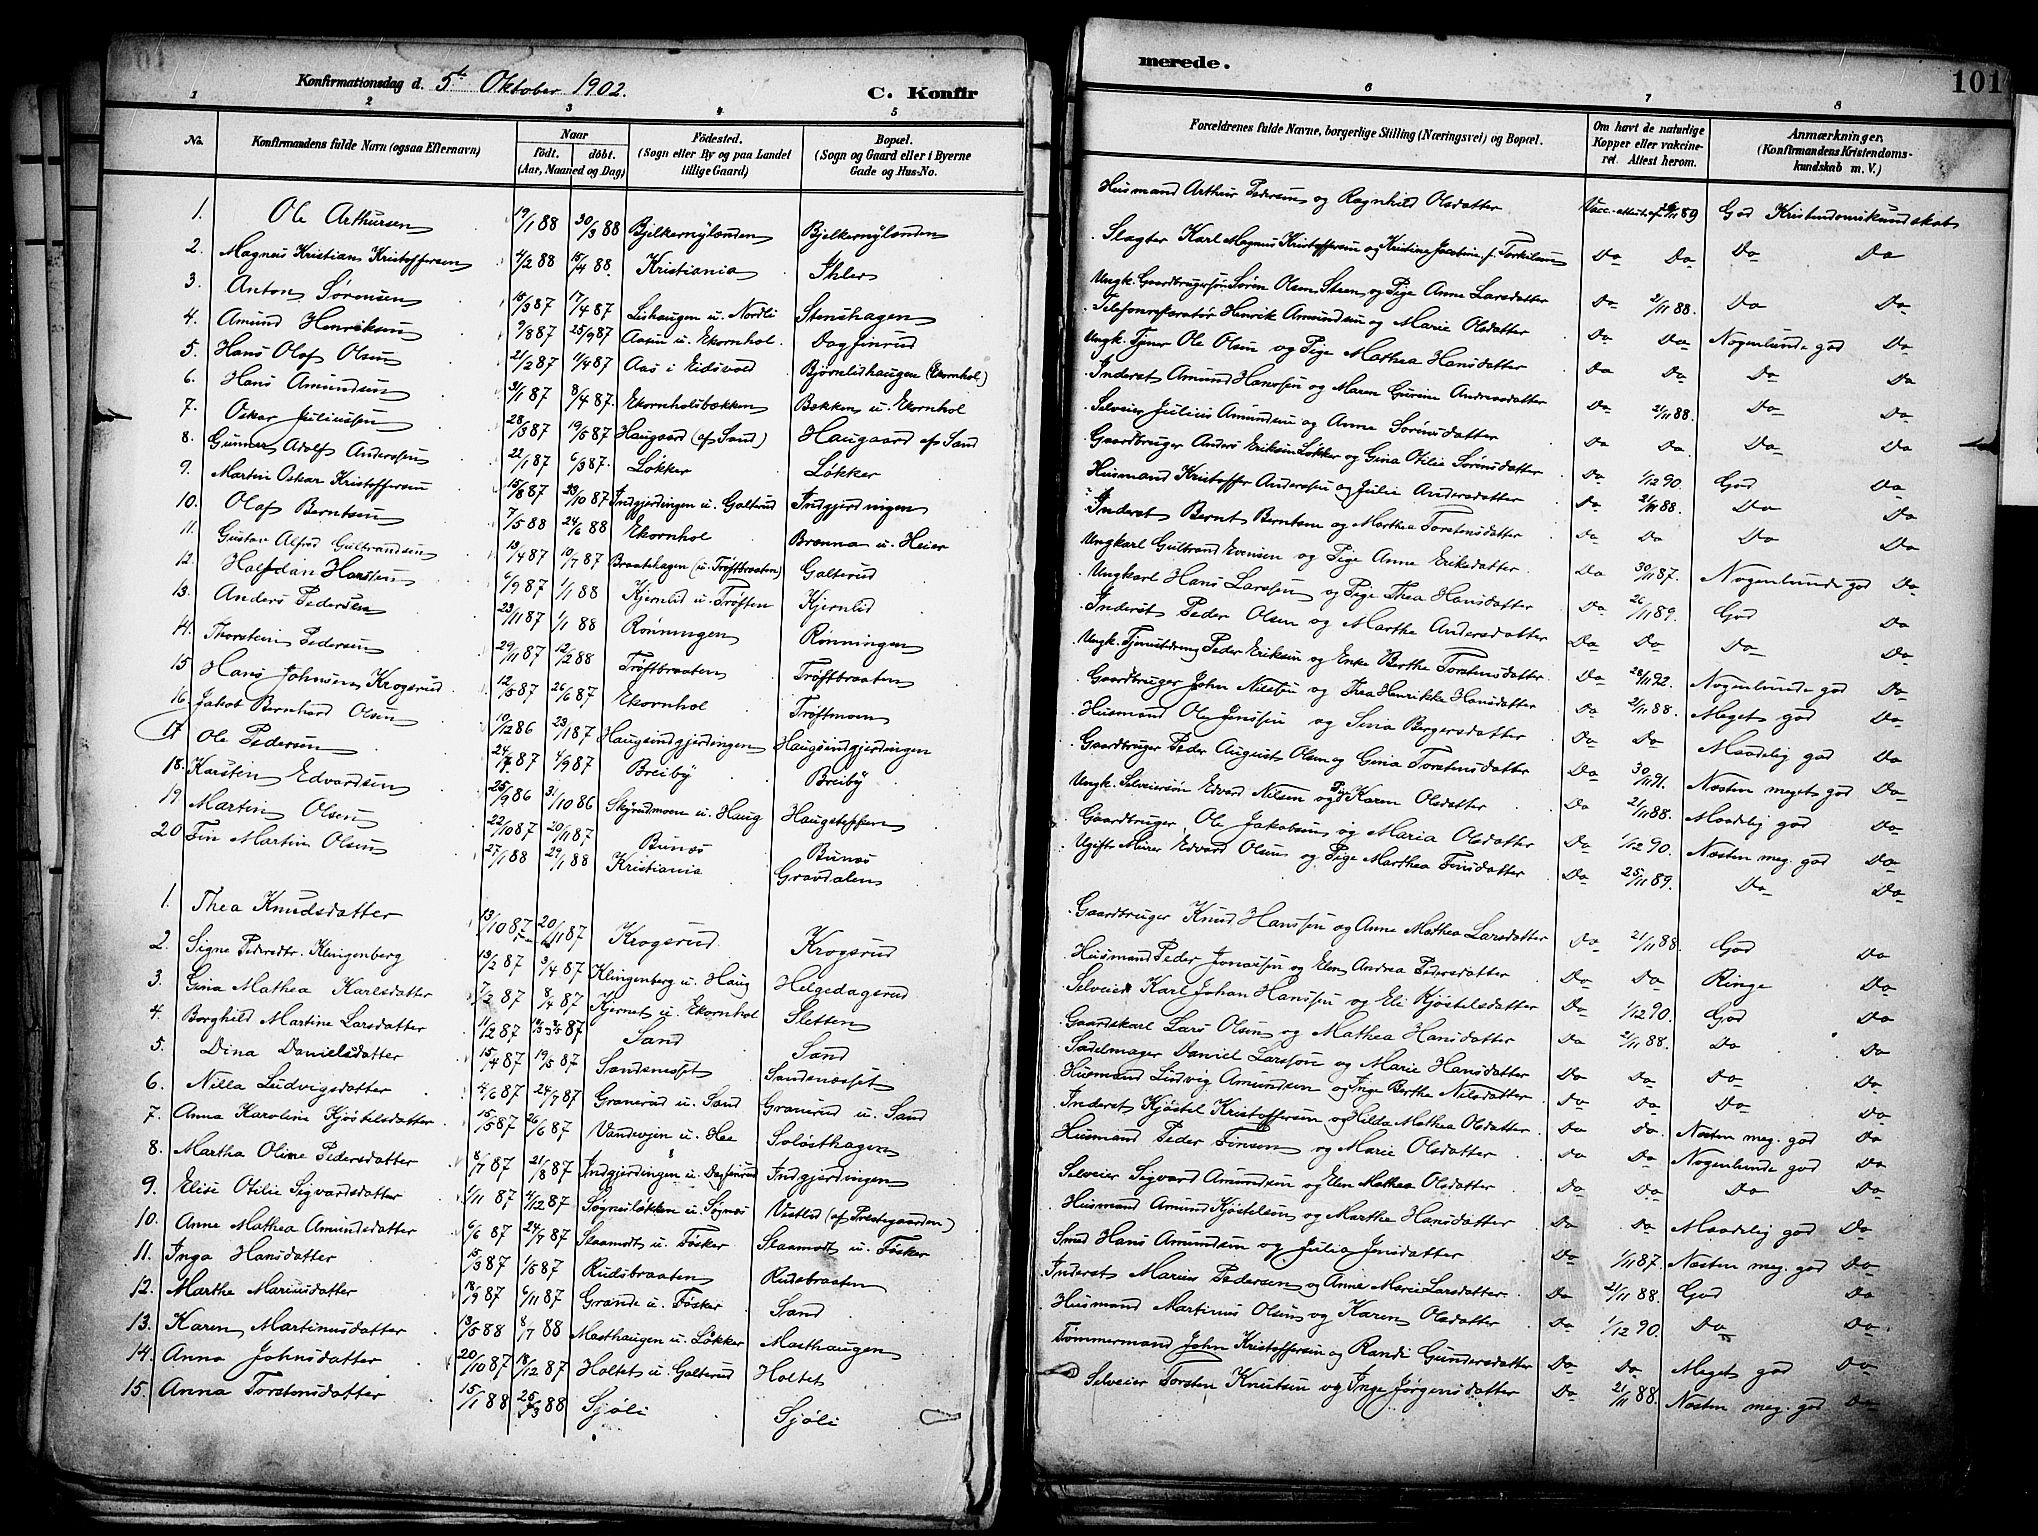 Konfirmationsdag d. 5te Oktober 1902. C. Konfir
merede. 101
1 2 3 4 5 6 7 8
No. Konfirmandens fulde Navn (ogsaa Efternavn) Naar født. døbt. (Aar, Maaned og Dag) Fødested. (Sogn eller By og paa Landet tillige Gaard) Bopæl. (Sogn og Gaard eller i Byerne Gade og Hus-No. Forældrenes fulde Navne, borgerlige Stilling (Næringsvei) og Bopæl. Om havt de naturlige Kopper eller vakcineret. Attest herom. Anmærkninger. (Konfirmandens Kristendomskundskab m. V.)
1. Ole Arthursen 19/1 88 30/3 88 Bjelkernylænden Bjelkernylænden Husmand Arthur Pedersen og Ragnhild Olsdatter Vacc.-attest af 89 God Kristendomskundskab
2. Magnus Kristian Kristoffersen 4/2 88 15/4 88. Kristiania Ihler Slagter Karl Magnus Kristoffersen og Kristine Jacobine f. Torkilsen Do Do Do Do
3. Anton Sørensen 15/3 87 17/4 87 Lishaugen u. Nordli Stenshagen Ungk. Gaardbrugersøn Søren Olsen Steen og Pige Anne Larsdatter Do 2/11 88. Do Do
4. Amund Henriksen 9/8 87 25/9 87 Aasen u. Ekornhol Dagfinrud Telefonreparatør Henrik Amundsen og Marie Olsdatter Do Do Nogenlunde god Do
5. Hans Olaf Olsen 21/2 87 11/4 87 Aas i Eidsvold Bjørnlidhaugen (Ekornhol) Ungk. Tjener Ole Olsen og Pige Mathea Hansdatter Do Do Do Do
6. Hans Amundsen 31/1 87 8/4 87. Ekornholsbækken Bækken u. Ekornhol Inderst Amund Hanssen og Maren Gurine Andreasdatter Do 21/11 88. Do Do
7. Oskar Juliussen 28/3 87 19/5 87 Haugaard (af Sand) Haugaard af Sand Selveier Julius Amundsen og Anne Sørensdatter Do Do. Do Do
8. Gunnar Adolf Anderssen 22/1 87 6/3 87. Løkker Løkker Gaardbruger Anders Eriksen Løkker og Gina Otilie Sørensdatter Do 1/12 90. God Do
9. Martin Oskar Kristoffersen 15/8 87 23/10 87 Indgjerdingen u. Galterud Indgjerdningen Husmand Kristoffer Anderssen og Julie Andersdatter Do 21/11 88. Do Do
10. Olaf Berntsen 7/5 88 24/6 88 Ekornhol Brænna u. Heier Inderst Bernt Berntsen og Marthea Torstensdatter Do Do Do Do
11. Gustav Alfred Gulbrandsen 13/4 87 10/7 87 Braatehagen (u. Trøftbraaten) Galterud Ungkarl Gulbrand Evensen og Pige Anne Eriksdatter Do 30/11 87. Nogenlunde god Do
12. Halfdan Hanssen 6/9 87 1/1 88 Kjernlid u. Trøften Kjernlid Ungkarl Hans Larssen og Pige Thea Hansdatter Do 26/11 89. God Do
13. Anders Pedersen 23/11 87 1/1 88 Rønningen Rønningen Inderst Peder Olsen og Marthe Andersdatter Do Do Do Do
14. Thorstein Pedersen 29/11 87 12/2 88 Trøftbraaten Trøftbraaten Ungk. Tjenestedreng Peder Eriksen og Enke Berthe Torstensdatter Do 28/11 92. Nogenlunde god Do
15. Hans Johnsen Krogsrud 12/5 87 26/6 87 Ekornhol Trøftmoen Gaardbruger John Nilssen og Thea Henrikke Hansdatter Do 21/11 88. Meget god Do
16. Jakob Bernhard Olsen 10/12 86 23/1 87 Haugsindgjerdingen Haugsindgjerdingen Husmand Ole Jenssen og Sina Bergersdatter Do Do Maadelig god Do
17 Ole Pedersen 24/7 87 4/9 87 Breiby Breiby Gaardbruger Peder August Olsen og Gina Torstensdatter Do 30/11 91. Næsten meget god Do
18. Karsten Edvardsen 25/9 86 31/10 86 Skyrudmoen u. Haug Haugsteppen Ungk. Selveiersøn Edvard Nilsen og Pige Karen Olsdatter Do 21/11 88. Maadelig god Do
19 Martin Olsen 22/10 87 20/11 87 Bunæs Bunæs Gaardbruger Ole Jakobsen og Maria Olsdatter Do 1/12 90. Næsten meg. god Do
20 Fin Martin Olsen 27/1 88 29/1 88 Kristiania Gravdalen Ugift Murer Edvard Olsen og Pige Marthea Finsdatter Do 25/11 89. Do Do
1. Thea Knudsdatter 13/10 87 20/11 87 Krogsrud Krogsrud Gaardbruger Knud Hanssen og Anne Mathea Larsdatter Do 21/11 88. God Do
2. Signe Pedersdtr. Klingenberg 13/2 87 3/4 87 Klingenberg u. Haug Helgedagsrud Husmand Peder Jonassen og Elen Andrea Pedersdatter Do Do Ringe Do
3. Gina Mathea Karlsdatter 7/2 87 8/4 87 Kjernet u. Ekornhol Sletten Selveier Karl Johan Hanssen og Eli Kjøstelsdatter Do 1/12 90. God Do
4. Borghild Martine Larsdatter 11/2 87 87 Sand Sand Gaardskarl Lars Olsen og Mathea Hansdatter Do 21/11 88. Do Do
5. Dina Danielsdatter 15/4 87 19/5 87 Sandsnesset Sandsnæsset Sadelmager Daniel Larssen og Marie Hansdatter Do Do Do Do
6. Nilla Ludvigsdatter 4/6 87 24/7 87 Granerud u. Sand Granerud u. Sand Husmand Ludvig Amundsen og Inge Berthe Nilsdatter Do Do Do Do
7. Anna Karoline Kjøstelsdatter 15/5 87 26/6 87 Vandvejen u. Hee Soløsthagen Inderst Kjøstel Kristoffersen og Hilda Mathea Olsdatter Do Do. Næsten meg. god Do
8. Martha Oline Pedersdatter 8/7 87 21/8 87 Indgjerdingen u. Dagfinrud Indgjerdingen Husmand Peder Finsen og Marie Olsdatter Do Do Nogenlunde god Do
9. Elise Otilie Sigvardsdatter 1/11 87 4/12 87 Søgnesløkken u. Søgnæs Vestlid (af Prestegaarden) Selveier Sigvard Amundsen og Elen Mathea Olsdatter Do Do Do Do
10. Anne Mathea Amundsdatter 6/6 87 24/7 87 Slaamodt u. Fosker Slaamodt u. Fosker Husmand Amund Kjøstelsen og Marthe Hansdatter Do Do Maadelig god Do
11. Inga Hansdatter 15/3 87 1/5 87 Rudsbraaten Rudsbraaten Smed Hans Amundsen og Julia Jensdatter Do 1/11 87 Næsten meg. god Do
12. Marthe Mariusdatter 18/9 87 6/11 87 Grande u. Fosker Sand Inderst Marius Pedersen og Anne Marie Larsdatter Do 21/11 88. God Do
13. Karen Martinusdatter 13/5 88 8/7 88 Masthaugen u. Løkker Masthaugen Husmand Martinus Olsen og Karen Olsdatter Do 1/12 90. Do Do
14. Anna Johnsdatter 20/10 87 18/12 87 Holtet u. Galterud Holtet Tømmermand John Kristoffersen og Randi Gundersdatter Do Do Meget god Do
15. Anna Torstensdatter 15/1 88 25/3 88 Sjøli Sjøli Selveier Torsten Knutsen og Inge Jørgensdatter Do 21/11 88. Næsten meg. god Do